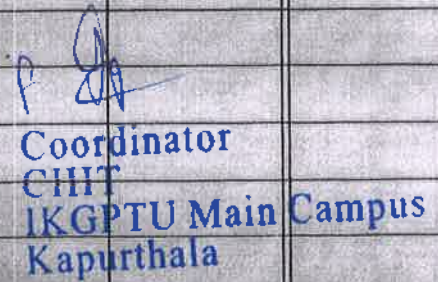 Coordinator
CHIT
IKGPTU Main Campus
Kapurthala